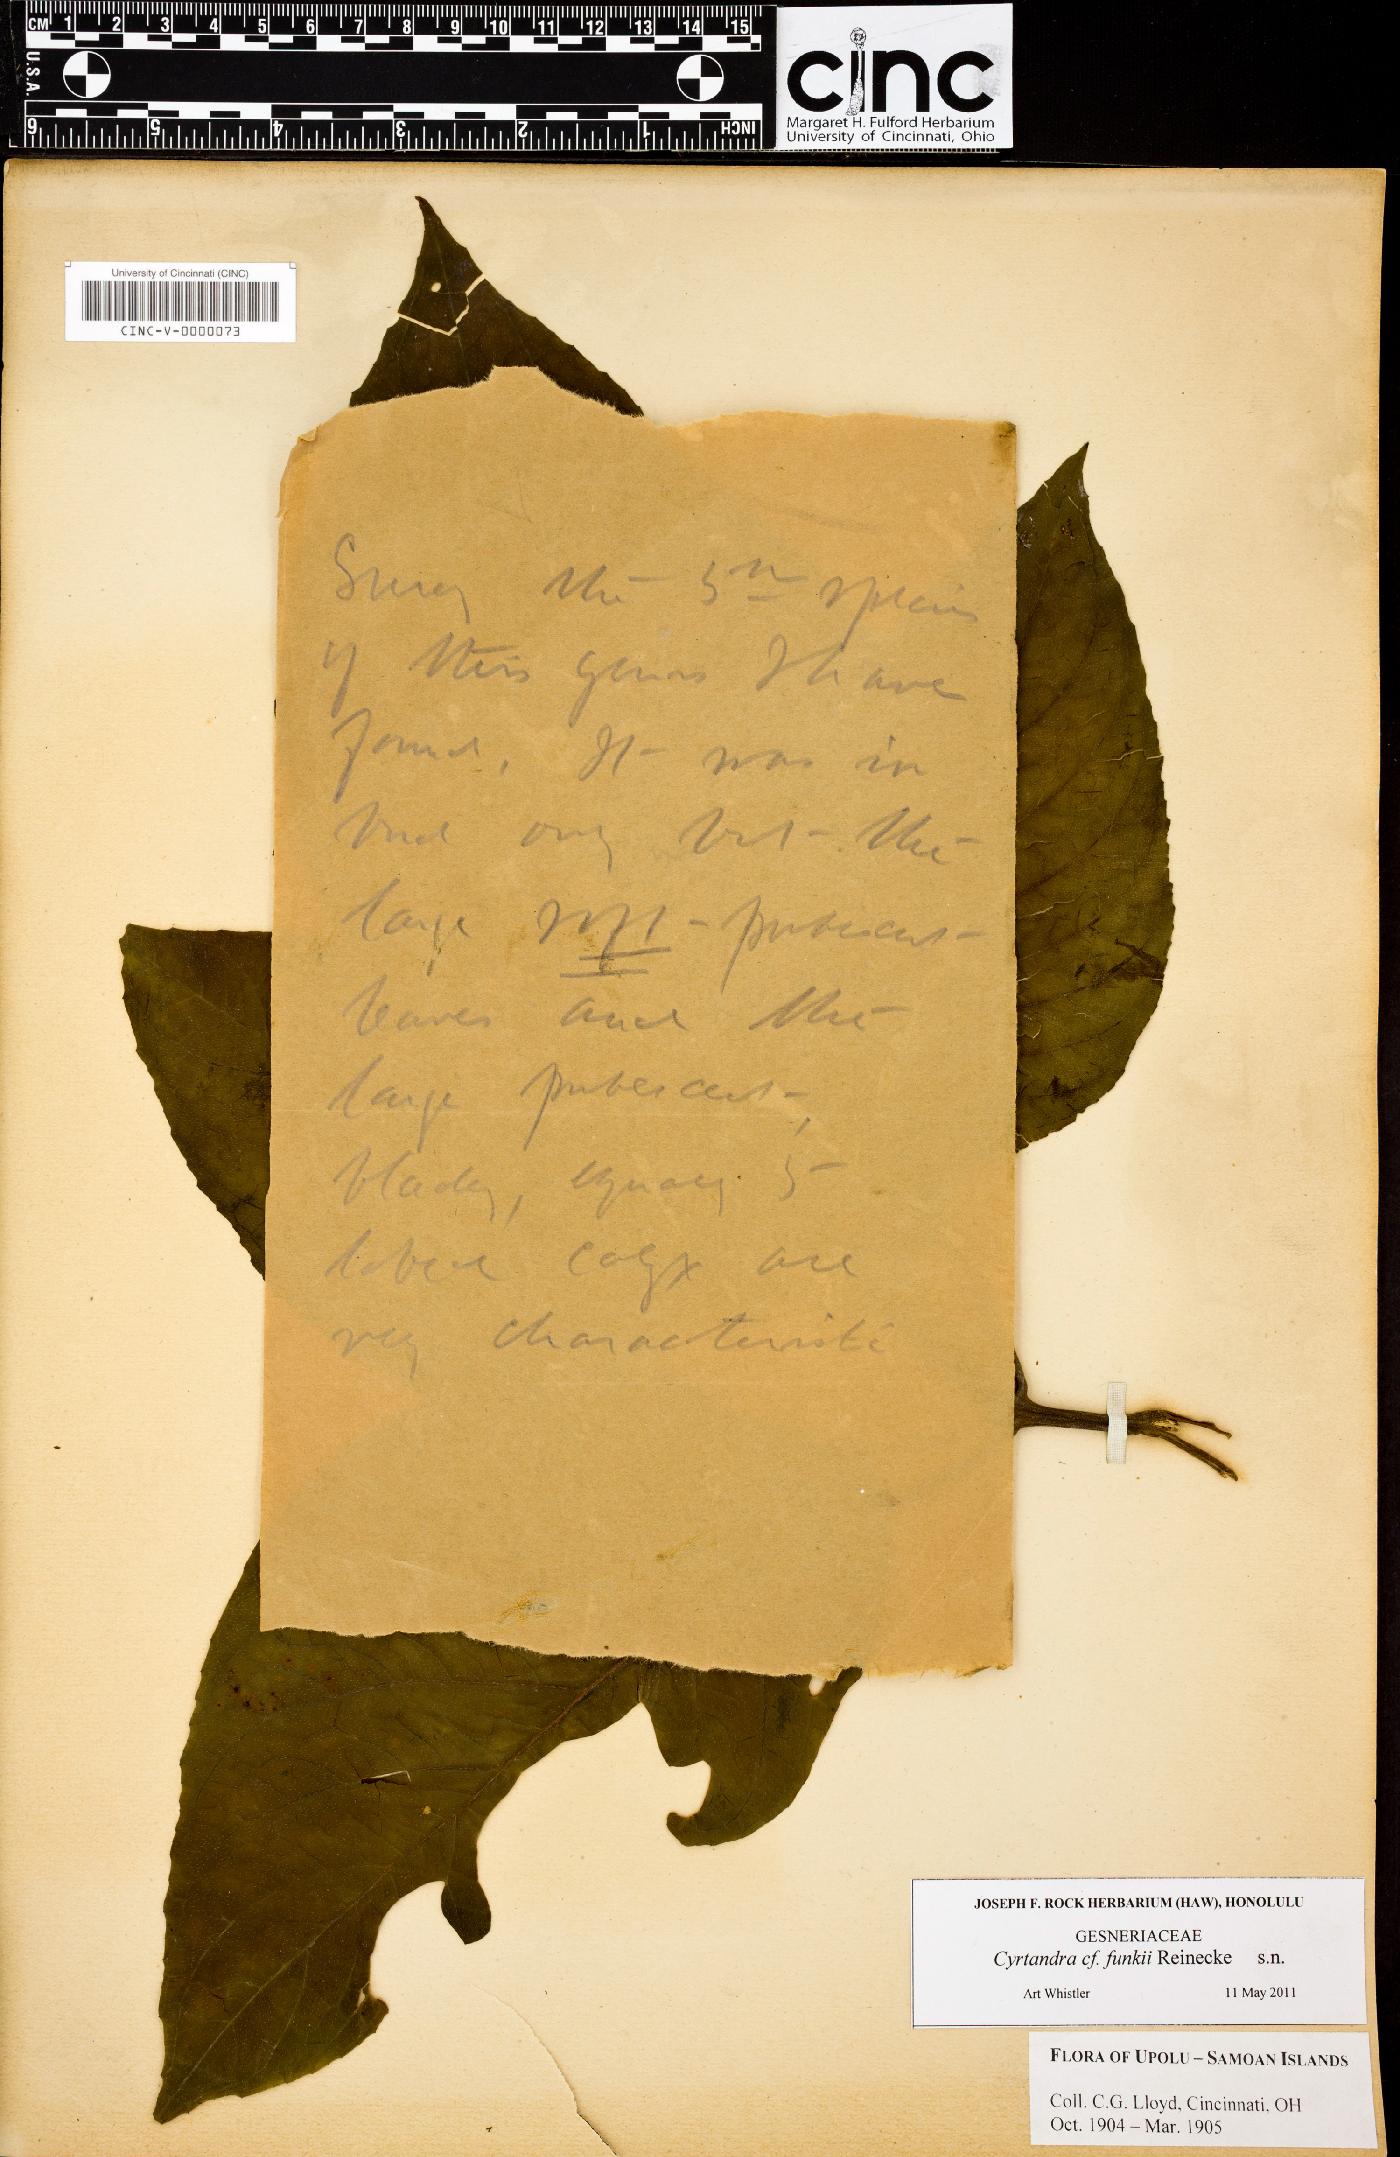 CM 1 2 3 4 5 6 7 8 9 10 11 12 13 14 15
U.S.A.
6 5 4 3 2 1 INCH
cinc
Margaret H. Fulford Herbarium
University of Cincinnati, Ohio
University of Cincinnati (CINC)
CINC-V-0000073
Surely the 5th species
of this genus I have
found. It was in
bud only but the
large soft-pubescent
leaves and the
large pubescent,
bladdery, equally 5
lobed calyx are
very characteristic
JOSEPH F. ROCK HERBARIUM (HAW), HONOLULU
GESNERIACEAE
Cyrtandra cf. funkii Reinecke s.n.
Art Whistler 11 May 2011
FLORA OF UPOLU – SAMOAN ISLANDS
Coll. C.G. Lloyd, Cincinnati, OH
Oct. 1904 – Mar. 1905